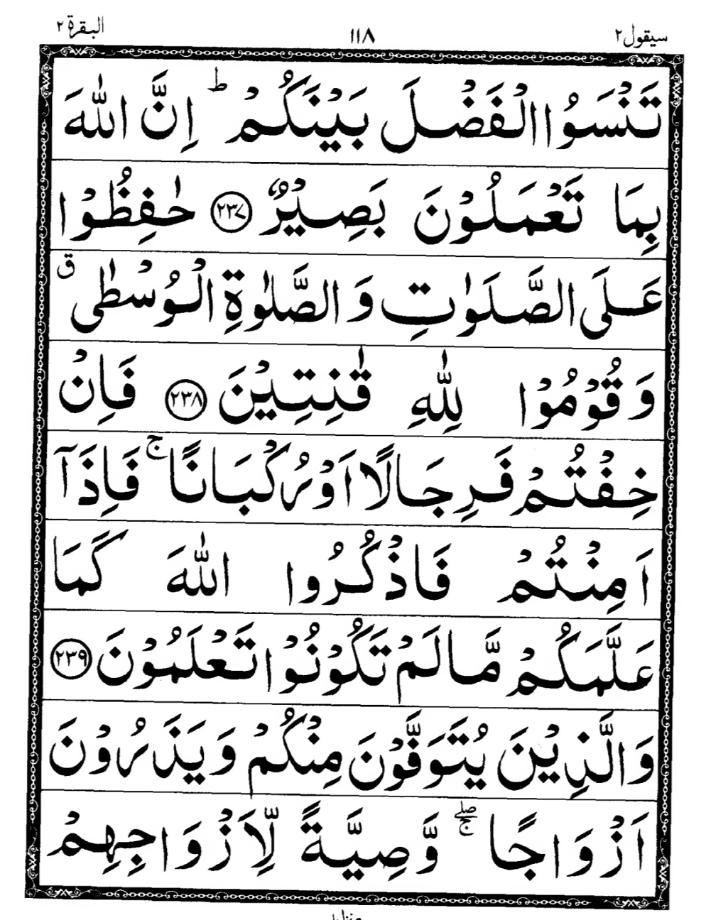 سيقول٢ ١١٨ البقرة٢
تَنْسَوُا الْفَضْلَ بَيْنَكُمْ ؕ اِنَّ اللّٰهَ
بِمَا تَعْمَلُوْنَ بَصِيْرٌ ﴿٢٣٧﴾ حٰفِظُوْا
عَلَى الصَّلَوٰتِ وَالصَّلٰوةِ الْوُسْطٰى ق
وَقُوْمُوْا لِلّٰهِ قٰنِتِيْنَ ﴿٢٣٨﴾ فَاِنْ
خِفْتُمْ فَرِجَالًا اَوْ رُكْبَانًا ۚ فَاِذَآ
اَمِنْتُمْ فَاذْكُرُوا اللّٰهَ كَمَا
عَلَّمَكُمْ مَّا لَمْ تَكُوْنُوْا تَعْلَمُوْنَ ﴿٢٣٩﴾
وَالَّذِيْنَ يُتَوَفَّوْنَ مِنْكُمْ وَيَذَرُوْنَ
اَزْوَاجًا ۖۚ وَّصِيَّةً لِّاَزْوَاجِهِمْ